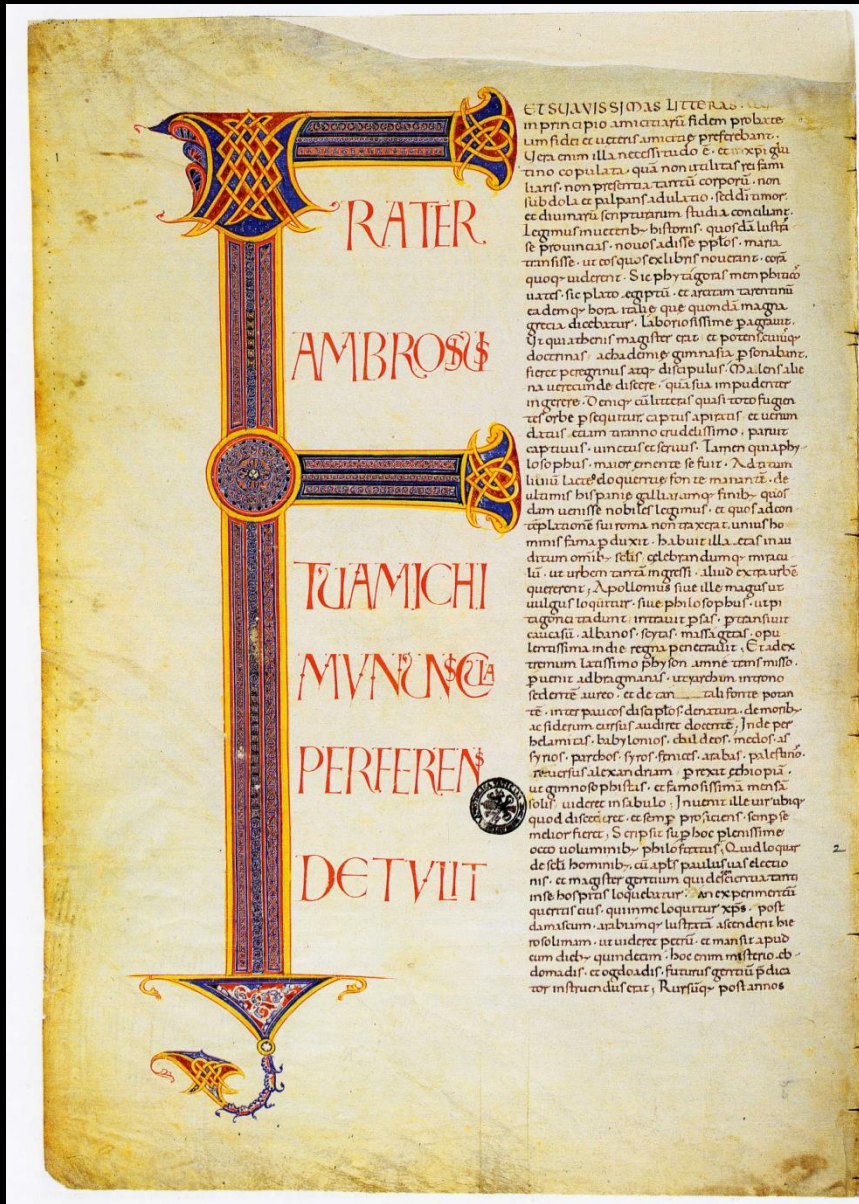 F
RATER
AMBROSIUS
TUA MICHI
MVNUNSCULA
PERFERENS
DETVLIT
ET SUAVISSIMAS LITTERAS
in principio amicitiarū fidem probate
iam fidei et ueteris amicitię preferebant.
Uera enim illa necessitudo ē. et xp̄i glu
tino copulata. quā non utilitas rei fami
liaris. non presentia tantū corporū. non
subdola et palpans adulatio. sed d̄i timor.
et diuinarū scripturarum studia conciliant.
Legimus in ueterib; historiis. quosdā lustra
se prouincias. nouos adisse pp̄los. maria
transisse. ut eos quos ex libris nouerant. corā
quoq; uiderent. Sic phytagoras memphiticos
uates. sic plato egiptū. et arcitam tarentinū
eademq; horā italię que quondā magna
grecia dicebatur. laboriosissime p̱agrauit.
Ut qui athenis magister erat. et potens. cuiusq;
doctrinas achademię gimnasia p̱sonabant.
fieret peregrinus atq; discipulus. Malens alie
na uerecunde discere. quā sua impudenter
ingerere. Deniq; cū litteras quasi toto fugien
tes orbe p̱sequitur. captus a piratis et uenun
datus. etiam tiranno crudelissimo. paruit
captiuus. uinctus et seruus. Tamen quia phy
losophus. maior emente se fuit. Ad titum
liuiū lacteo eloquentię fonte manantē. de
ultimis hispanię galliarumq; finib; quos
dam uenisse nobiles legimus. et quos ad con
tēplationē sui roma non traxerat. unius ho
minis fama p̱duxit. habuit illa ętas inau
ditum omnib; sc̄lis. celebrandumq; miracu
lū. ut urbem tantā ingressi. aliud extra urbē
quererent; Apollonius siue ille magus ut
uulgus loquitur. siue philosophus. ut pi
tagorici tradunt. intrauit p̱sas. p̱transiuit
caucasū. albanos. scytas. massagetas. opu
lentissima indię regna penetrauit; Et ad ex
tremum latissimo physon amne transmisso.
p̱uenit ad bragmanas. ut yarchim in trono
sedentē aureo. et de tantali fonte potan
tē. inter paucos discip̄los. de natura. de morib;
ac siderum cursu audiret docentē; Inde per
helamitas. babylonios. chaldeos. medos. as
syrios. parthos. syros. fenices. arabas. palestinos.
reuersus alexandriam p̱rexit ęthiopiā.
ut gimnosophistas. et famosissimā mensā
solis uideret in sabulo; Inuenit ille uir ubiq;
quod disceret. et semp̱ proficiens. semp̱ se
melior fieret; Scripsit sup̱ hoc plenissime
octo uoluminib; philostratus; Quid loquar
de sc̄li hominib;. cū ap̄ls paulus uas electio
nis. et magister gentium qui de scientia tanti
in se hospitis loquebatur. an experimentū
queritis eius. qui in me loquitur xp̄s. post
damascum. arabiamq; lustratā. ascenderit hie
rosolimam. ut uideret petrū. et mansit apud
eum dieb; quindecim. hoc enim misterio eb
domadis. et ogdoadis. futurus gentiū p̄dica
tor instruendus erat; Rursūq; post annos
2